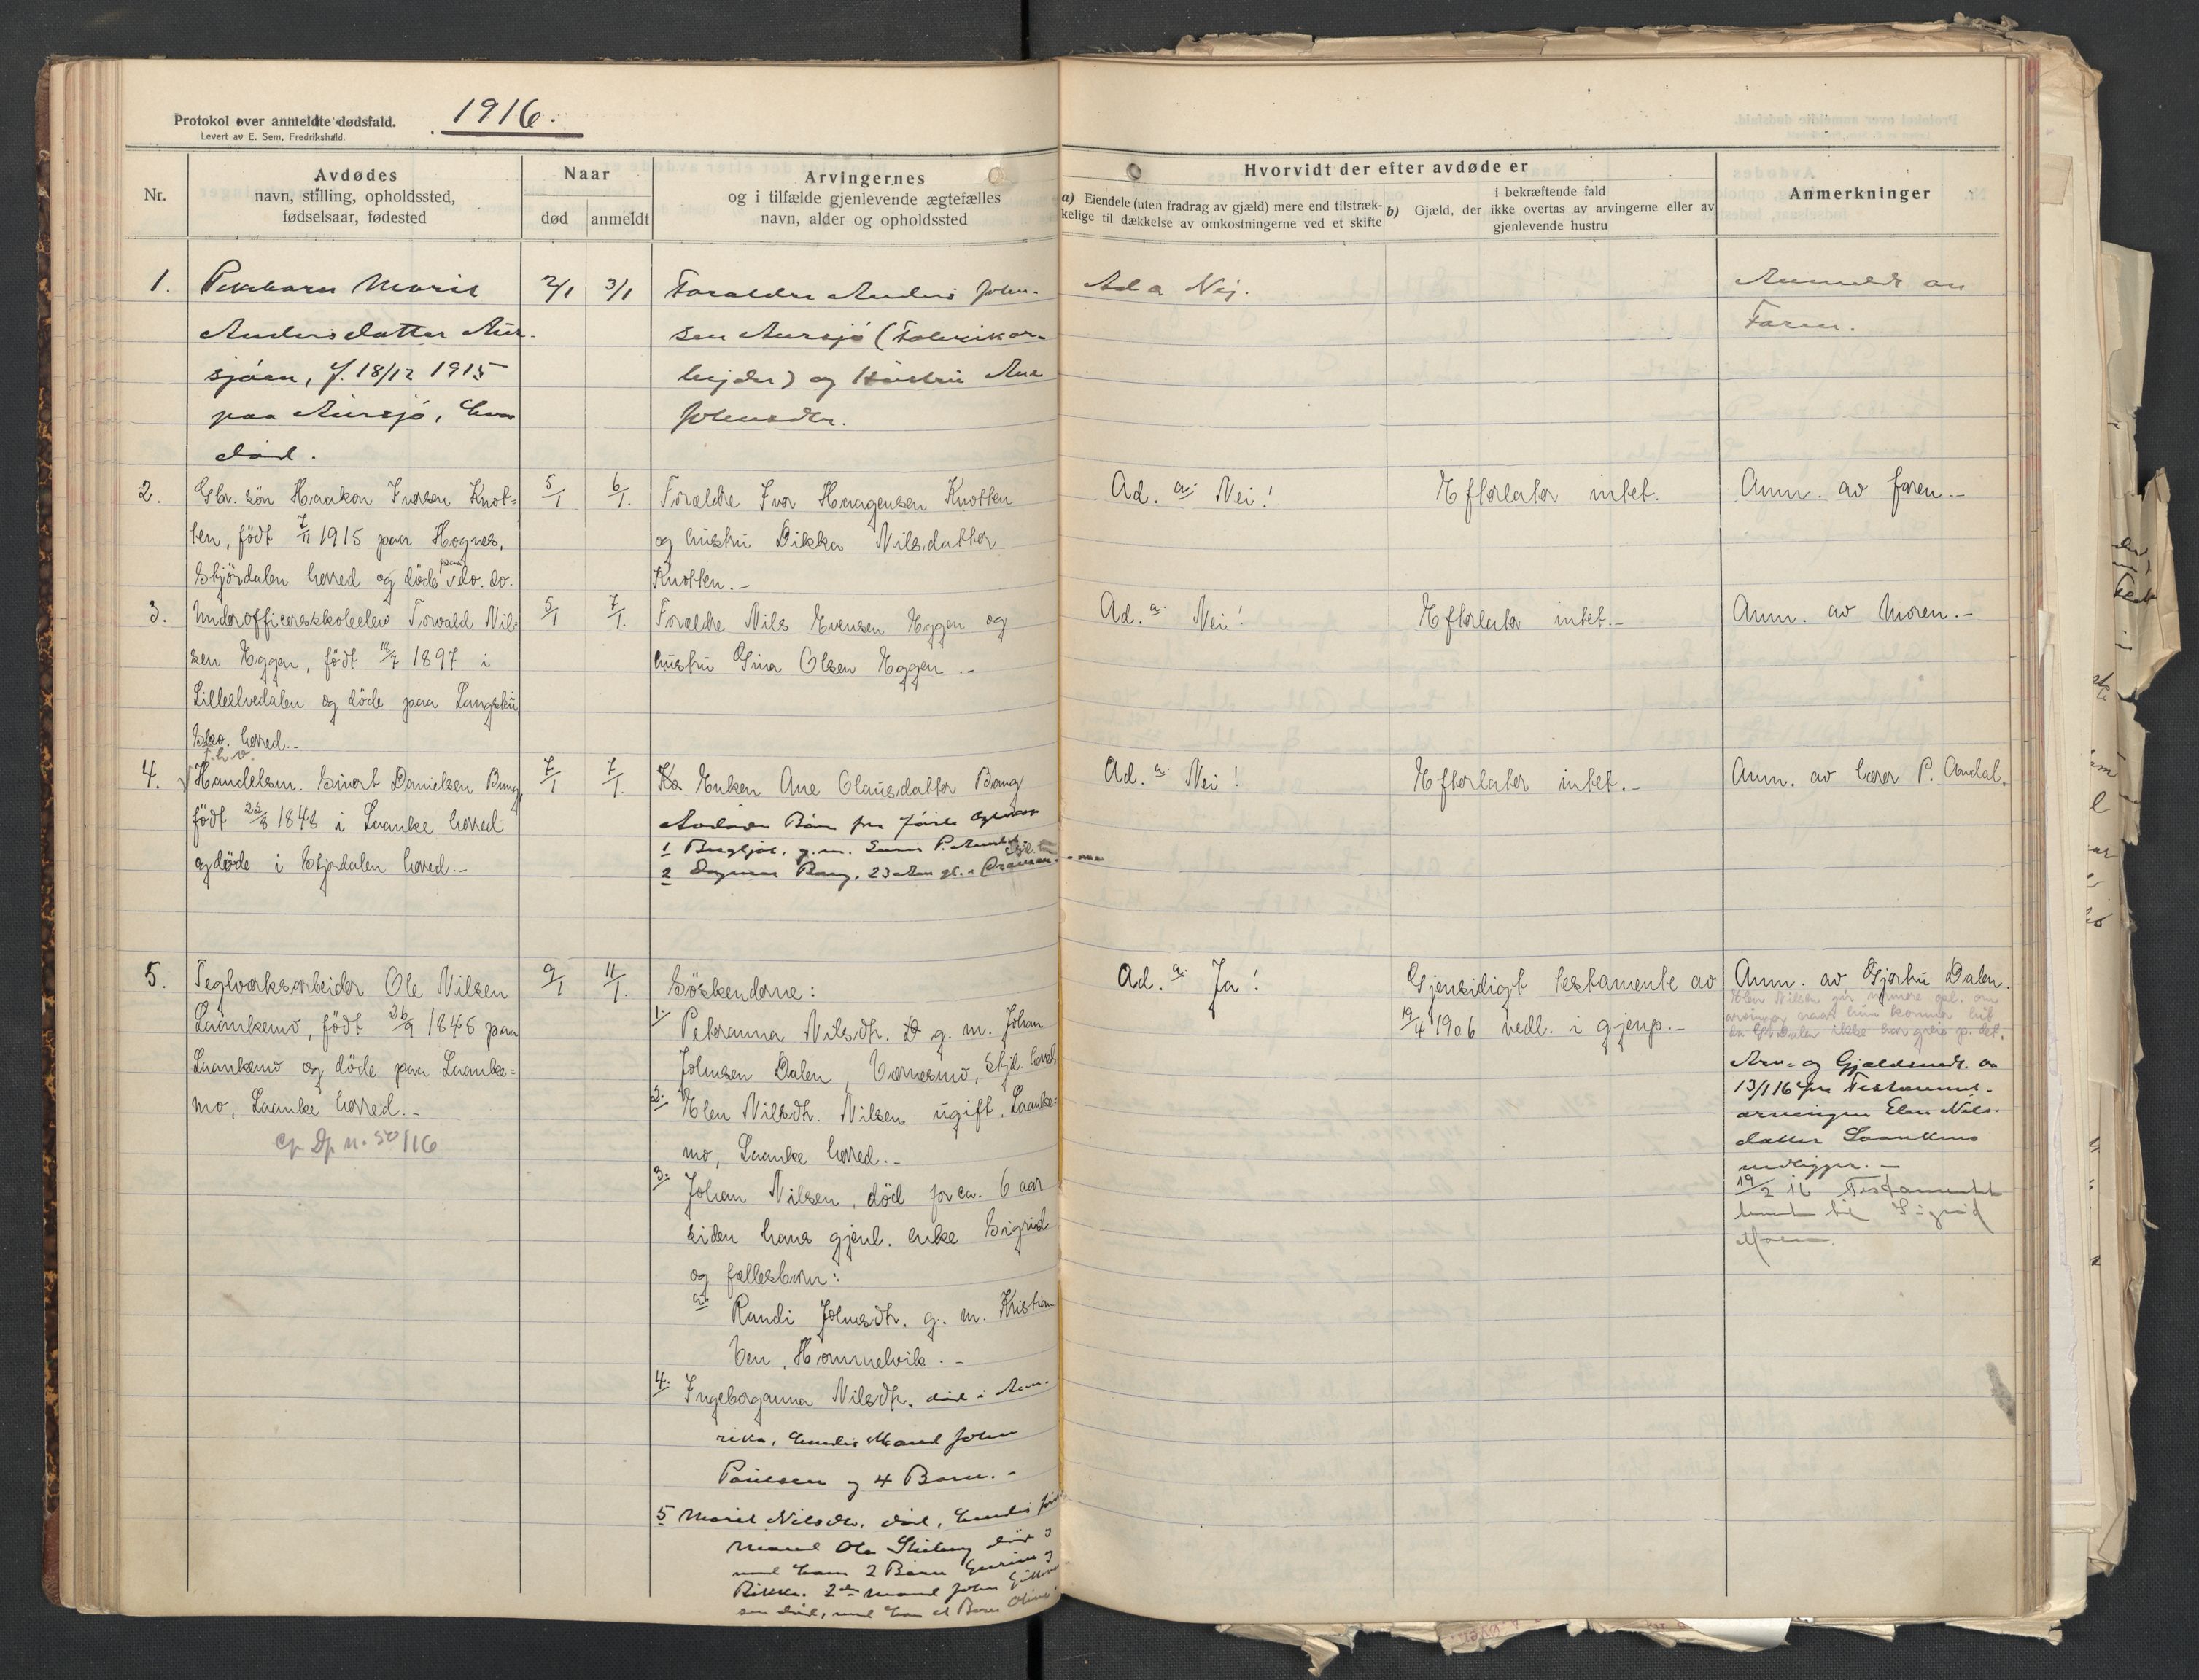 Protokol over anmeldte dødsfald.
Levert av E. Sem, Fredrikshald.
1916.
Nr.
Avdødes
navn, stilling, opholdssted,
fødselsaar, fødested
Naar
død
anmeldt
Arvingernes
og i tilfælde gjenlevende ægtefælles
navn, alder og opholdssted
Hvorvidt der efter avdøde er
a) Eiendele (uten fradrag av gjæld) mere end tilstræk-
kelige til dækkelse av omkostningerne ved et skifte
b)
i bekræftende fald
Gjæld, der ikke overtas av arvingerne eller av
gjenlevende hustru
Anmerkninger
1.
Pikebarn Marit
Andersdatter Aur-
sjöen, f. 18/12 1915
paa Aursjö, hvor
död.
2/1
3/1
Forældre Anders John-
sen Aursjö (Fabrikar-
beider) og Hustru Ane
Johnsdtr.
Ad a Nej.
Anmeldt av
Faren.
2.
Gbr. sön Haakon Ivarsen Knot-
ten, födt 7/11 1915 paa Hognes,
Stjördalen herred og döde paa do. do.
5/1
6/1.
Forældre Ivar Haagensen Knotten
og hustru Dikka Nilsdatter
Knotten.-
Ad. a. Nei!
Efterlater intet.
Anm. av faren.-
3.
Underofficersskoleelev Torvald Nil-
sen Eggen, födt 18/7 1897 i
Lilleelvedalen og döde paa
herred.-
5/1
7/1.
Forældre Nils Evensen Eggen og
hustru Gina Olsen Eggen.-
Ad. a. Nei!
Efterlater intet.-
Anm. av Moren.-
4.
f.h.v.
Handelsm. Sivert Danielsen Bang
födt 25/8 1848 i Laanke herred
og döde i Stjørdalen herred.-
7/1
7/1.
Enken Ane Olausdatter Bang
Avdödes Börn fra förste
1 Bergljot, g.m.
2 Dagmar Bang, 23 Aar gl.
Ad. a. Nei!
Efterlater intet.-
Anm. av lærer P. Aundal.
5.
Teglverksarbeider Ole Nilsen
Laankemo, födt 26/9 1845 paa
Laankemo og döde paa Laanke-
mo, Laanke herred.-
50/16
9/1
11/1.
Söskenderne:
1. Peteranna Nilsdtr. g. m. Johan
Johnsen Dalen, Værnesmo, Stjd. herred
2. Elen Nilsdtr. Nilsen ugift, Laanke-
mo, Laanke herred.-
3. Johan Nilsen, död for ca. 6 aar
siden hans gjenl. enke Sigrid
og fællesbarn:
a. Randi Johnsdtr. g. m. Kristian
Ven, Hommelvik.-
4. Ingeborganna Nilsdtr. död i Ame-
rika, hendes Mand John
Paulsen og 4 Barn.-
5 Marit Nilsdtr. död, hendes förste
Mand Ole död og
med ham 2 Barn Gurine og
Rikke. 2den Mand John
sen död, med ham et Barn Oline
Ad. a. Ja!
Gjensidigt testamente av
19/4 1906 vedl. i gjenp.-
Anm. av Gjertru Dalen.
Elen Nilsen gir nærmere opl. om
arvinger naar hun kommer hit
da G. Dalen ikke har greie p. det.
Arv- og Gjældsmedl. av
13/1 16 fra Testament-
arvingen Elen Nils-
datter Laankmo
vedligger.-
19/2 16 Testamentet
levert til Sigrid
Moen.